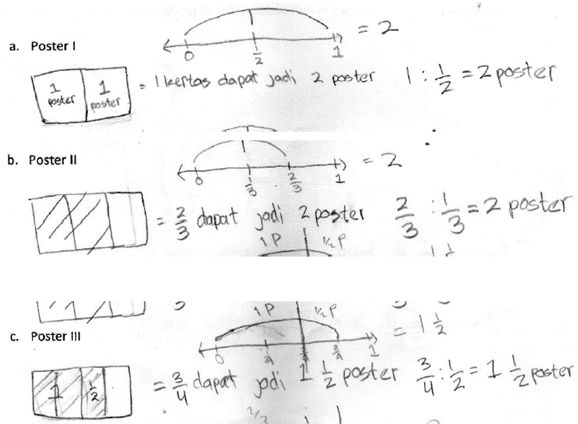 = 2
0 1/2 1
a. Poster I
1 poster 1 poster = 1 kertas dapat jadi 2 poster 1 : 1/2 = 2 poster
b. Poster II
= 2
0 1/3 2/3 1
= 2/3 dapat jadi 2 poster 2/3 : 1/3 = 2 poster
1 P 1/2 P
1 P 1/2 P
c. Poster III
= 1 1/2
0 1
1 1/2 = 3/4 dapat jadi 1 1/2 poster 3/4 : 1/2 = 1 1/2 poster